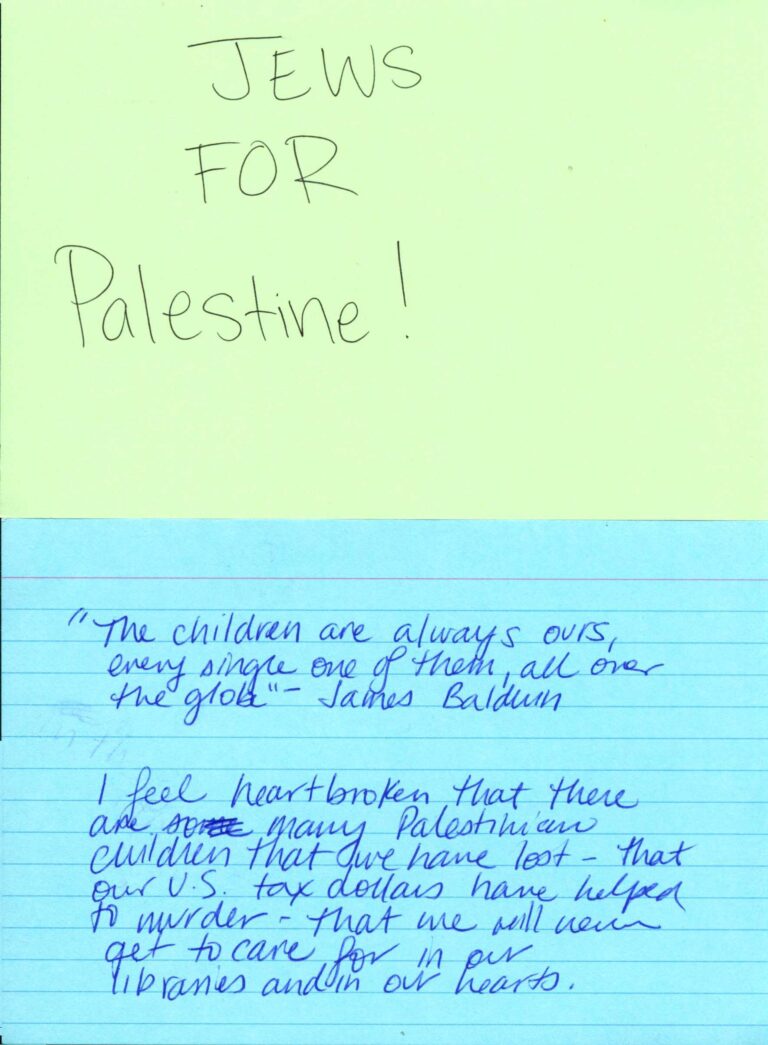 JEWS
FOR
Palestine!
"The children are always ours,
every single one of them, all over
the globe" - James Baldwin
I feel heartbroken that there
are many Palestinian
children that we have lost - that
our U.S. tax dollars have helped
to murder - that we will never
get to care for in our
libraries and in our hearts.